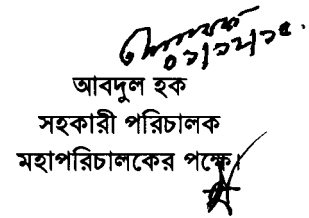 ০১/১২/১৫
আবদুল হক
সহকারী পরিচালক
মহাপরিচালকের পক্ষে।